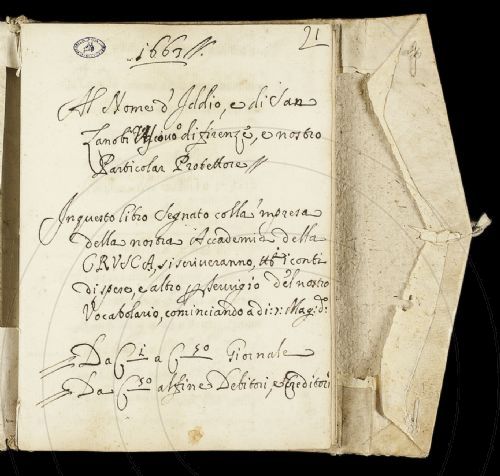 21
1663
Al Nome d'Iddio, e di San
Zanobi Vescovo di firenze, e nostro
Particolar Protettore
In questo libro Segnato colla 'mpresa
della nostra Accademia della
CRUSCA, si scriveranno, i conti
di spese, e altro servizio del nostro
Vocabolario, cominciando a dì: 1: Mag:
Da C 1 a C 50 Giornale
Da C 50 al fine Debitori, e Creditori